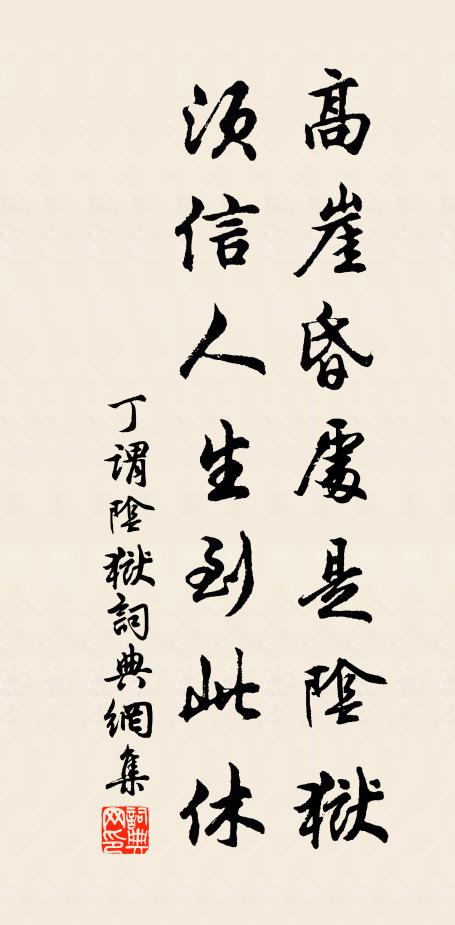 高崖昏處是陰獄
須信人生到此休
丁謂陰獄詞典網集
詞典网印